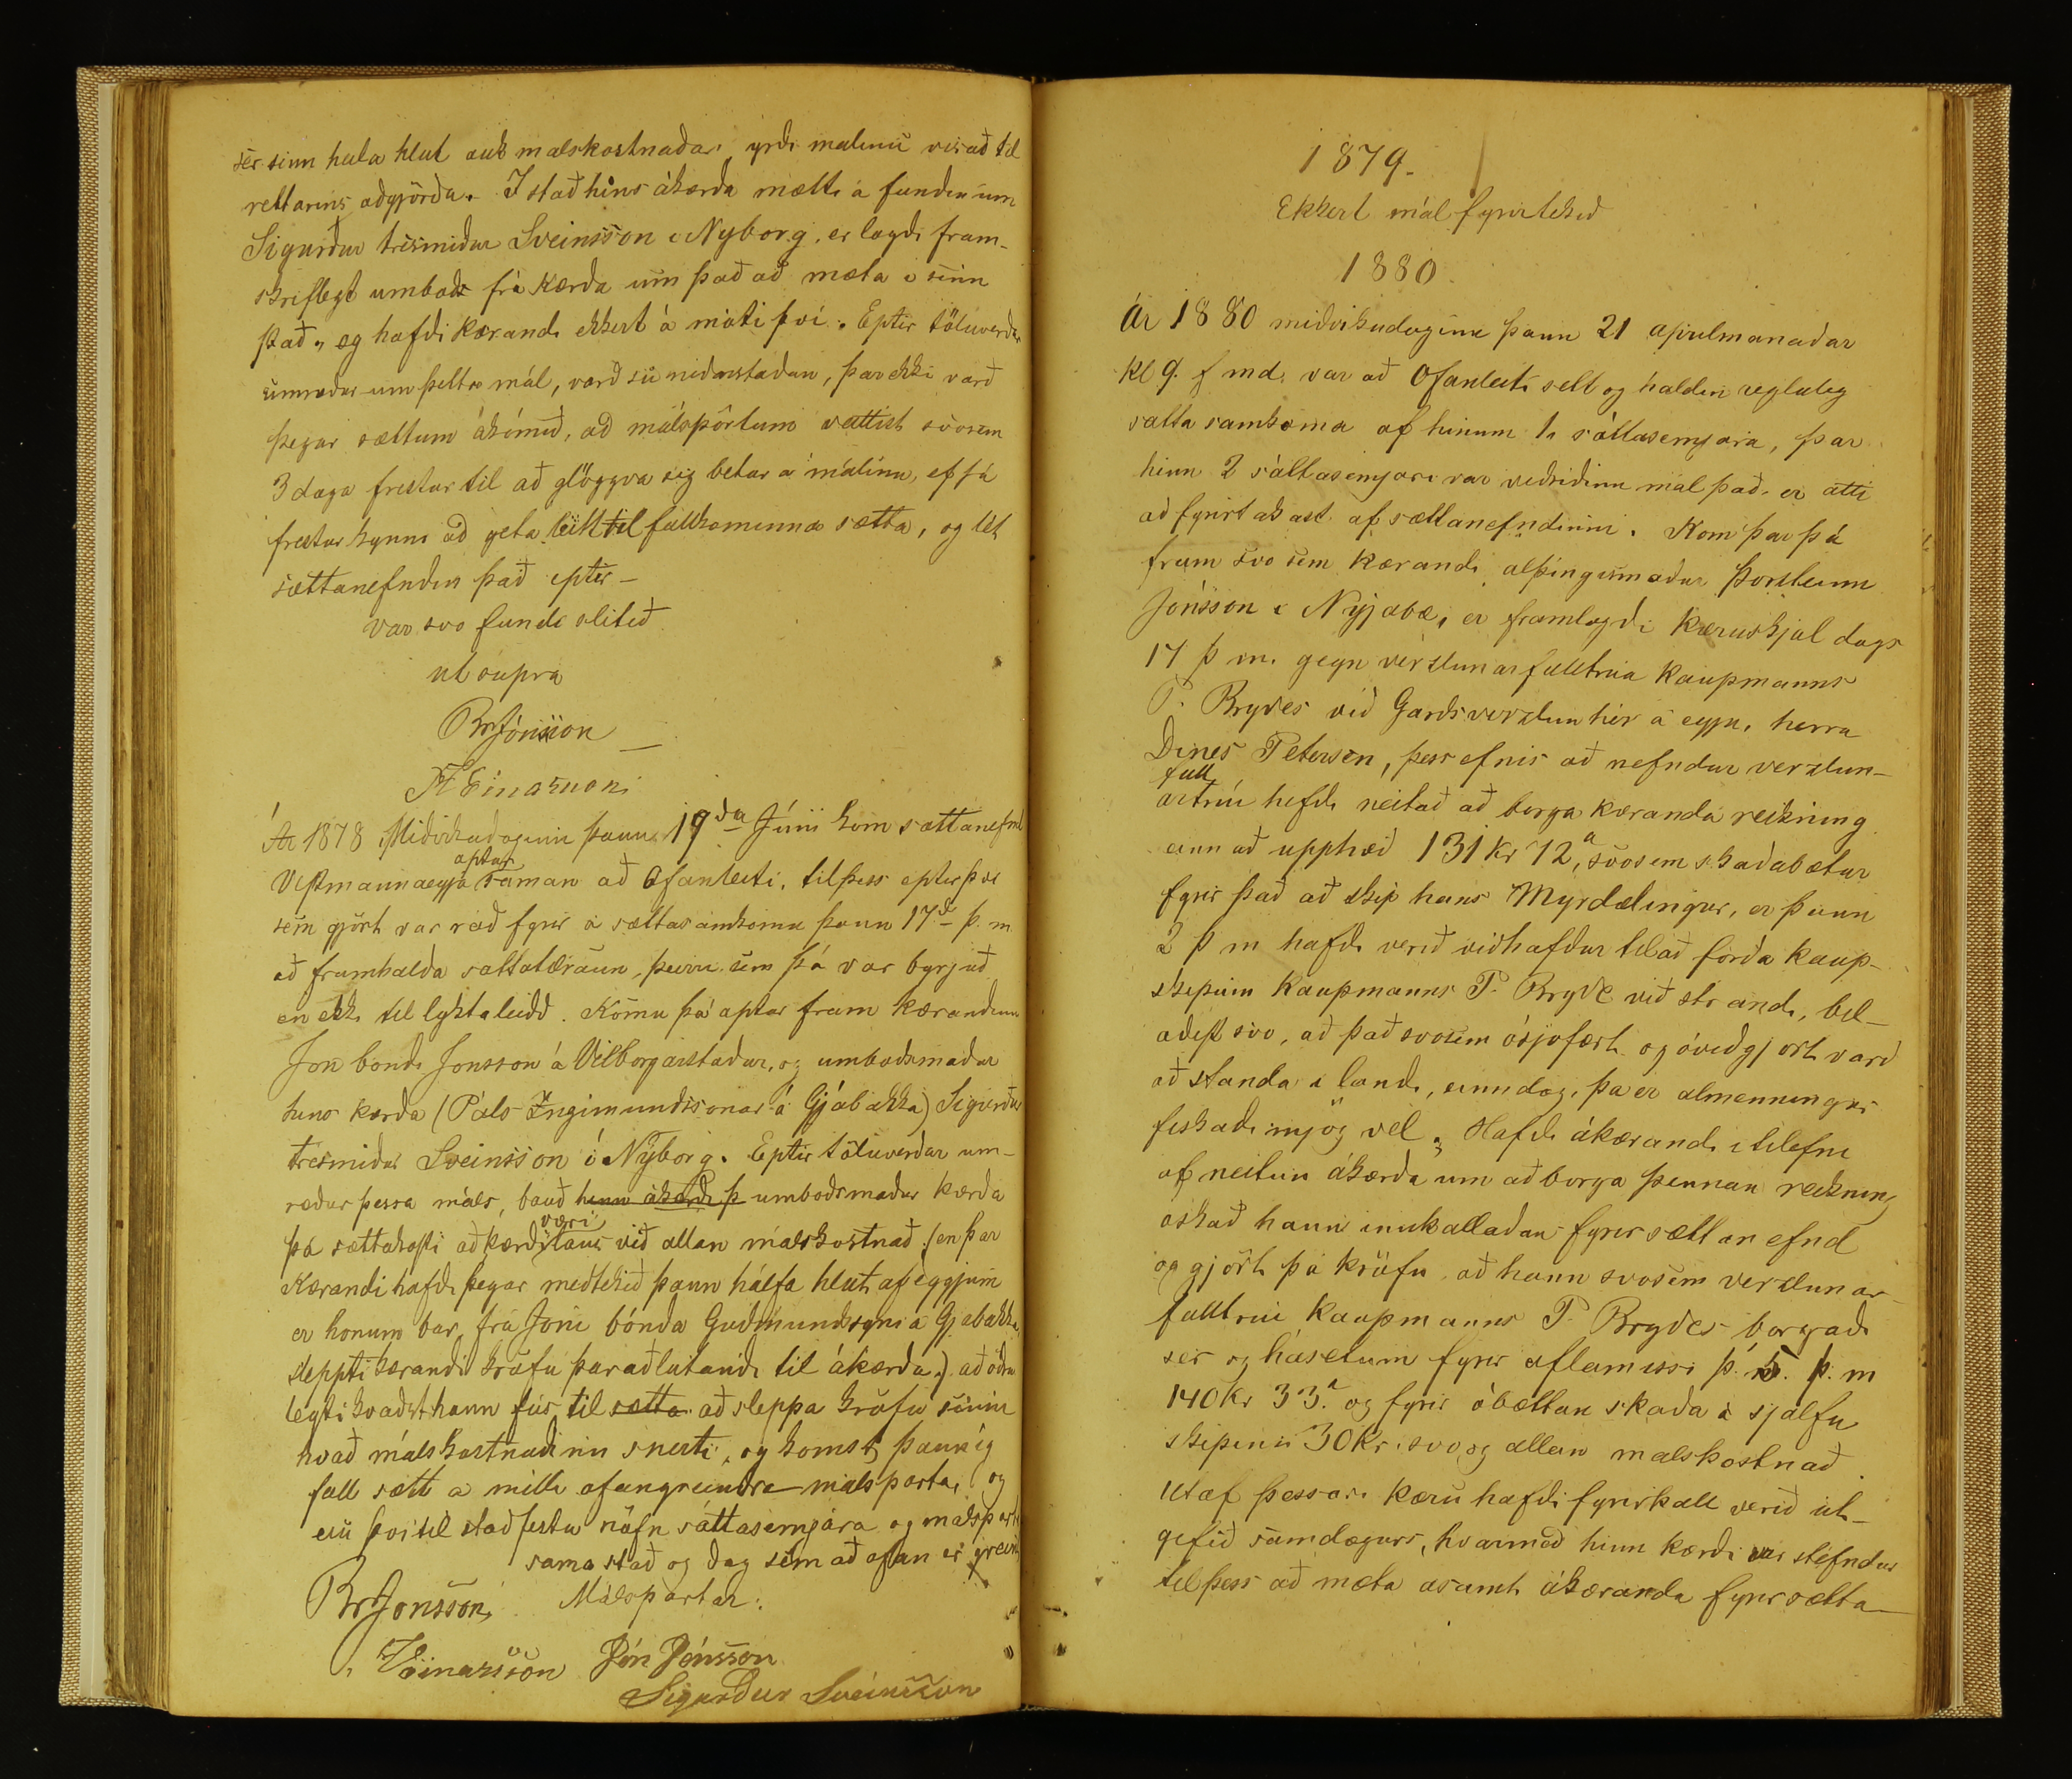 sèr sinn hala hlut auk malskostnaðar, yrði malinu visað til
rettarins aðgjörða. I stað hins ákærða mætti á fundinum
Sigurður trèsmiður Sveinsson i Nyborg, er lagði fram-
skriflegt umboð frá kærða um það að mæta i sinn
stað, og hafði kærandi ekkert á móti þvi. Eptir töluverðar
umræður um þetta mál, varð sú niðurstaðan, þar ekki varð
þegar sættum ákomið, að málspörtum veittist svosem
3 daga frestur til að glöggva sig betur á málinu, ef sá
frestur kynni að geta leitt til fullkominna sætta, og lèt
sættanefndin það eptir_
var svo fundi slitið
ut supra
BrJónsson _
H Einarsson
Ár 1878 Miðvikudaginn þann 19da Júnii kom sættanefnd
Vestmannaeyja aptur saman að Ofanleiti, til þess eptir þvi
sem gjört var ráð fyrir á sættasamkomu þann 17d þ. m
að framhalda sáttatilraun, þeirri sem þá var byrjuð
en ekki til lyktaleidd. Komu þá aptur fram kærandinn
Jón bondi Jonsson á Vilborgarstaðir, og umboðsmaður
hins kærða (Páls Ingimundssonar á Gjábakka) Sigurður
trèsmiður Sveinsson i Nýborg. Eptir töluverðar um-
ræður þessa máls, bauð hinn ákærði þ umboðsmaður kærða
þá sættakosti að kærði væri laus við allan málskostnað, (en þar
Kærandi hafði þegar meðtekið þann hálfa hlut af eggjum
er honum bar, frá Jóni bónda Guðmundssyni á Gjábakka,
sleppti kærandi kröfu þar aðlútandi til ákærða.) að öðru
leyti kvaðst hann fús til sætta að sleppa kröfu sinni
hvað málskostnaðinn snerti, og komst þannig
full sætt á milli ofangreindra málsparta, og
eru þvi til staðfestu nöfn sáttasemjara og málsparta
sama stað og dag sem að ofan er greint
BrJonsson, Málspartar:
Einarsson Jón Jónsson
Sigurður Sveinsson
1879.
Ekkert mál fyrirtekið
1880
Ár 1880 miðvikudaginn þann 21 aprilmanaðar
Kl 9. f md. var að Ofanleiti sett og haldin regluleg
sátta samkoma af hinum 1. sáttasemjara, þar
hinn 2 sáttasemjari var viðriðinn mál það, er átti
að fyrirtakast af sættanefndinni. Kom þar þá
fram svo sem kærandi alþingismaður Þorsteinn
Jónsson i Nýjabæ, er framlagði kæruskjal dags
17 þ m. gegn verzlunarfulltrúa kaupmanns
P. Bryðes við Garðsverzlun hèr á eyju, herra
Dines Petersen, þess efnis að nefndur verzlun-
full
artrúi hefði neitað að borga kæranda reikning
einn að upphæð 131 kr 72a, svosem skaðabætur
fyrir það að skip hans Myrdælingur, er þann
2 þ m hafði verið viðhafður til að forða kaup-
skipum kaupmanns P. Bryde við strandi, bil-
aðist svo, að það svosem ósjófært og óviðgjört varð
að standa i landi, einn dag, þa er almenningur
fiskaði mjög vel. Hafði ákærandi i tilefni
af neitun ákærða um að borga þennan reikning
óskað hann innkallaðan fyrir sættanefnd
og gjört þá kröfu, að hann svosem verzlunar
fulltrúi kaupmanns P. Brydes borgaði
sèr og hásetum fyrir aflamissi þ. 5. þ. m
140 kr 33a og fyrir óbættan skaða á sjálfu
skipinu 30 kr. svo og allan malskostnað.
Utaf þessari kæru hafði fyrirkall verið út-
gefið samdægurs, hvarmeð hinn kærði var stefndur
til þess að mæta ásamt ákæranda fyrir sætta-